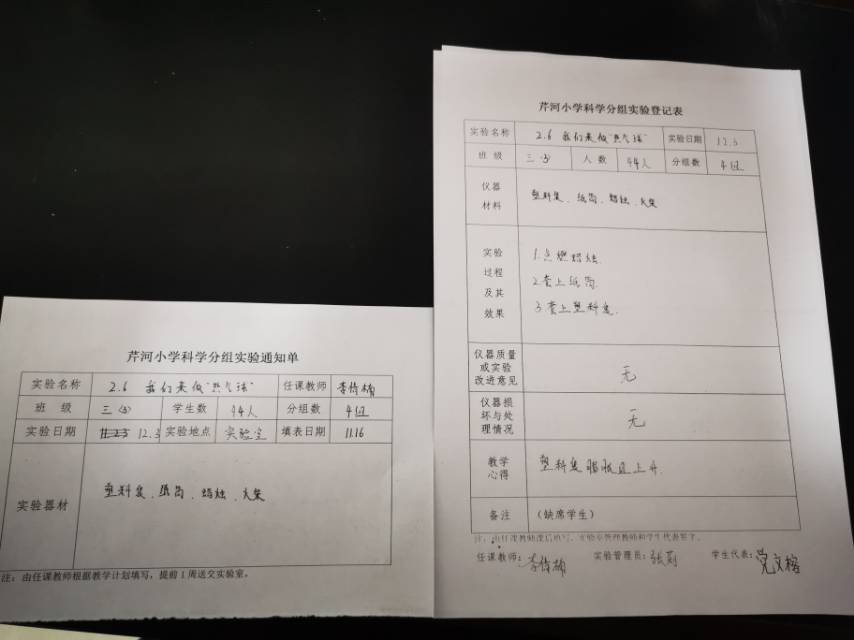 芹河小学科学分组实验通知单
实验名称 2.6 我们来做"热气球" 任课教师 李倩楠
班 级 三(3) 学生数 44人 分组数 4组
实验日期 12.3 实验地点 实验室 填表日期 11.16
实验器材 塑料袋、纸筒、蜡烛、火柴
注：由任课教师根据教学计划填写，提前1周送交实验室。
芹河小学科学分组实验登记表
实验名称 2.6 我们来做"热气球" 实验日期 12.3
班 级 三(3) 人 数 44人 分组数 4组
仪器
材料 塑料袋、纸筒、蜡烛、火柴
实验
过程
及其
效果
1.点燃蜡烛.
2.套上纸筒.
3.套上塑料袋.
仪器质量
或实验
改进意见 无
仪器损
坏与处
理情况 无
教学
心得 塑料袋膨胀且上升.
备注 (缺席学生)
注：由任课教师课后填写，实验室管理教师和学生代表签字。
任课教师：李倩楠 实验管理员：张莉 学生代表：党文榕